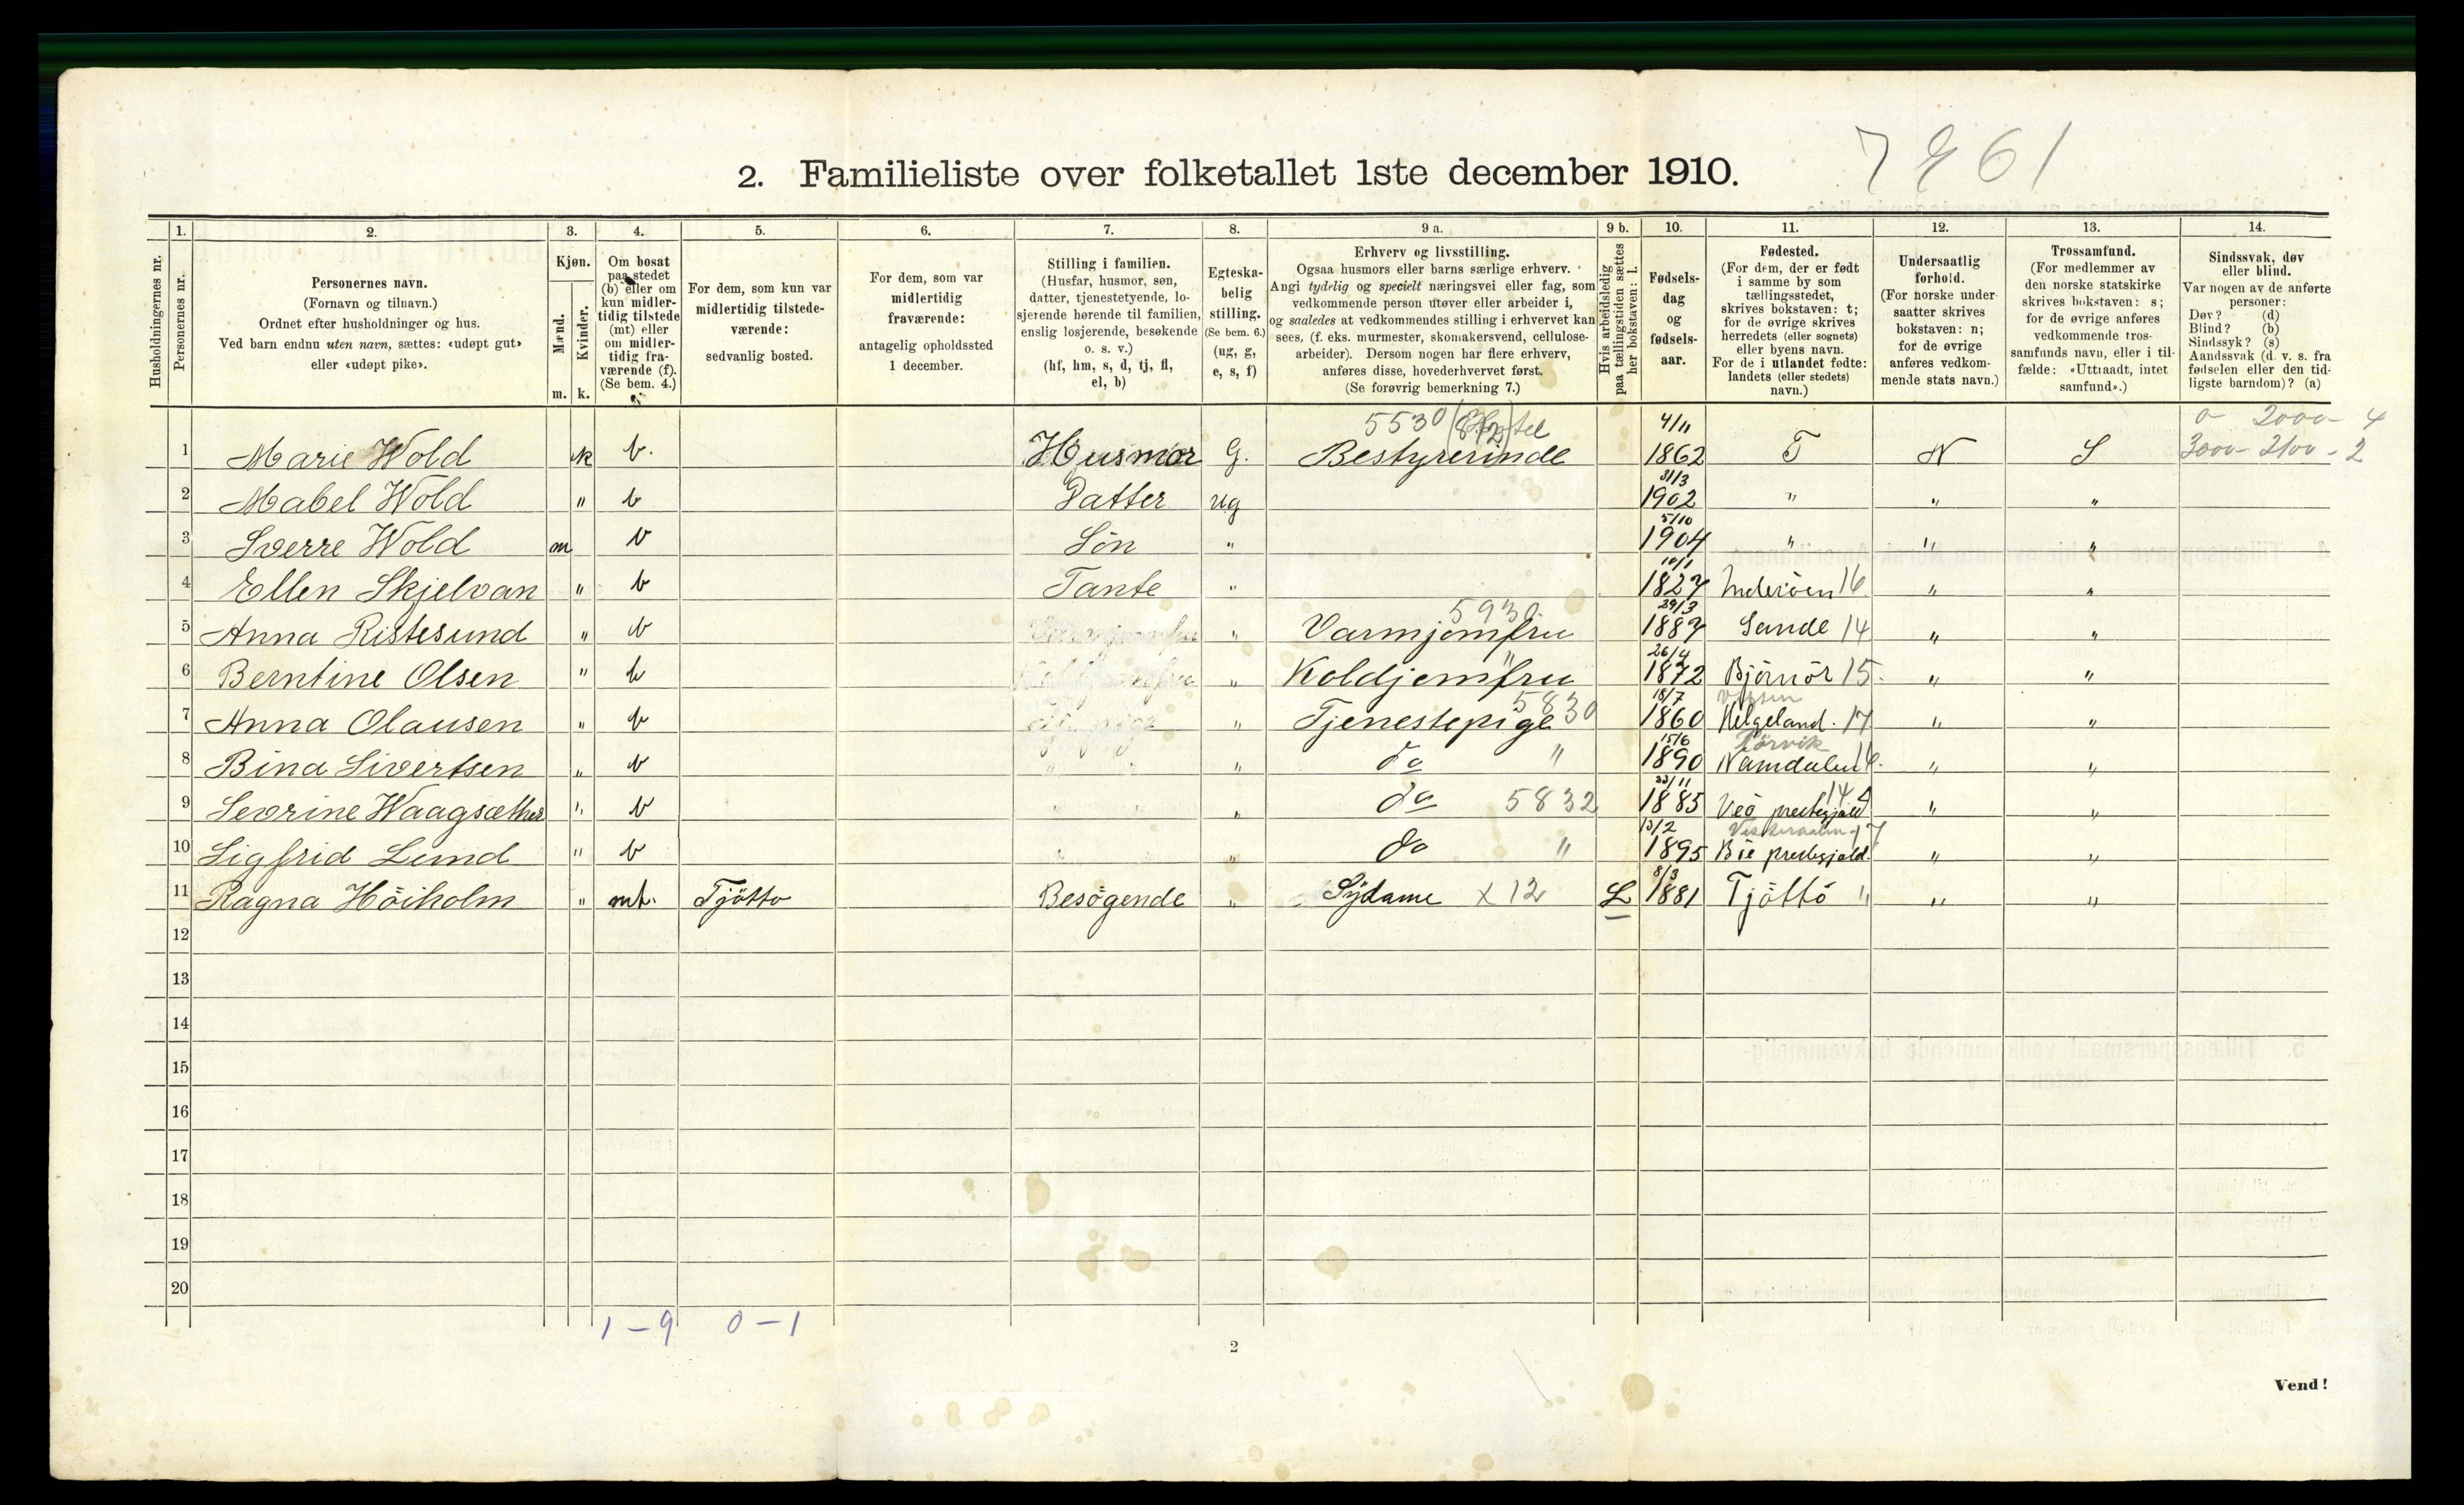 7861
2. Familieliste over folketallet 1ste december 1910.
Husholdningernes nr.
1. Personernes nr.
2. Personernes navn. (Fornavn og tilnavn.) Ordnet efter husholdninger og hus. Ved barn endnu uten navn, sættes: «udøpt gut» eller «udøpt pike».
3. Kjøn. Mænd. m. Kvinder. k.
4. Om bosat paa stedet (b) eller om kun midlertidig tilstede (mt) eller om midlertidig fraværende (f). (Se bem. 4.)
5. For dem, som kun var midlertidig tilstedeværende: sedvanlig bosted.
6. For dem, som var midlertidig fraværende: antagelig opholdssted 1 december.
7. Stilling i familien. (Husfar, husmor, søn, datter, tjenestetyende, losjerende hørende til familien, enslig losjerende, besøkende o. s. v.) (hf, hm, s, d, tj, fl, el, b)
8. Egteskabelig stilling. (Se bem. 6.) (ug, g, e, s, f)
9 a. Erhverv og livsstilling. Ogsaa husmors eller barns særlige erhverv. Angi tydelig og specielt næringsvei eller fag, som vedkommende person utøver eller arbeider i, og saaledes at vedkommendes stilling i erhvervet kan sees, (f. eks. murmester, skomakersvend, cellulosearbeider). Dersom nogen har flere erhverv, anføres disse, hovederhvervet først. (Se forøvrig bemerkning 7.)
9 b. Hvis arbeidsledig paa tællingstiden sættes her bokstaven: l.
10. Fødselsdag og fødselsaar.
11. Fødested. (For dem, der er født i samme by som tællingsstedet, skrives bokstaven: t; for de øvrige skrives herredets (eller sognets) eller byens navn. For de i utlandet fødte: landets (eller stedets) navn.)
12. Undersaatlig forhold. (For norske undersaatter skrives bokstaven: n; for de øvrige anføres vedkommende stats navn.)
13. Trossamfund. (For medlemmer av den norske statskirke skrives bokstaven: s; for de øvrige anføres vedkommende trossamfunds navn, eller i tilfælde: «Uttraadt, intet samfund».)
14. Sindssvak, døv eller blind. Var nogen av de anførte personer: Døv? (d) Blind? (b) Sindssyk? (s) Aandssvak (d. v. s. fra fødselen eller den tidligste barndom)? (a)
5530 Hotel 4/11 0 2000-4
1 Marie Wold k b. Husmor G. Bestyrerinde 1862 T N S 3000-2100-2
2 Mabel Wold " b Datter ug 31/3 1902 " " "
3 Sverre Wold m b Sön " 5/10 1904 " " "
4 Ellen Skjelvan " b Tante " 10/1 1827 Inderöen 16 " "
5 Anna Ristesund " b " Varmjomfru 5930 29/3 1887 Sande 14 " "
6 Berntine Olsen " b " Koldjomfru " 26/4 1872 Björnör 15. " "
7 Anna Olausen " b " Tjenestepige 5830 18/7 1860 Vefsen Helgeland. 17 " "
8 Bina Sivertsen " b " do " 15/6 1890 Namdalen 16. " "
9 Sevrine Waagsæther " b " do 5832 23/11 1885 Veö prestegjæld 14 " "
10 Sigfrid Lund " b " do " 13/2 1895 Vesteraalen 17 Bö prestegjæld. " "
11 Ragna Höiholm " mt. Tjötto Besögende " Sydame X 12 L 8/3 1881 Tjöttö " " "
12
13
14
15
16
17
18
19
20
1 - 9 0 - 1
2
Vend!